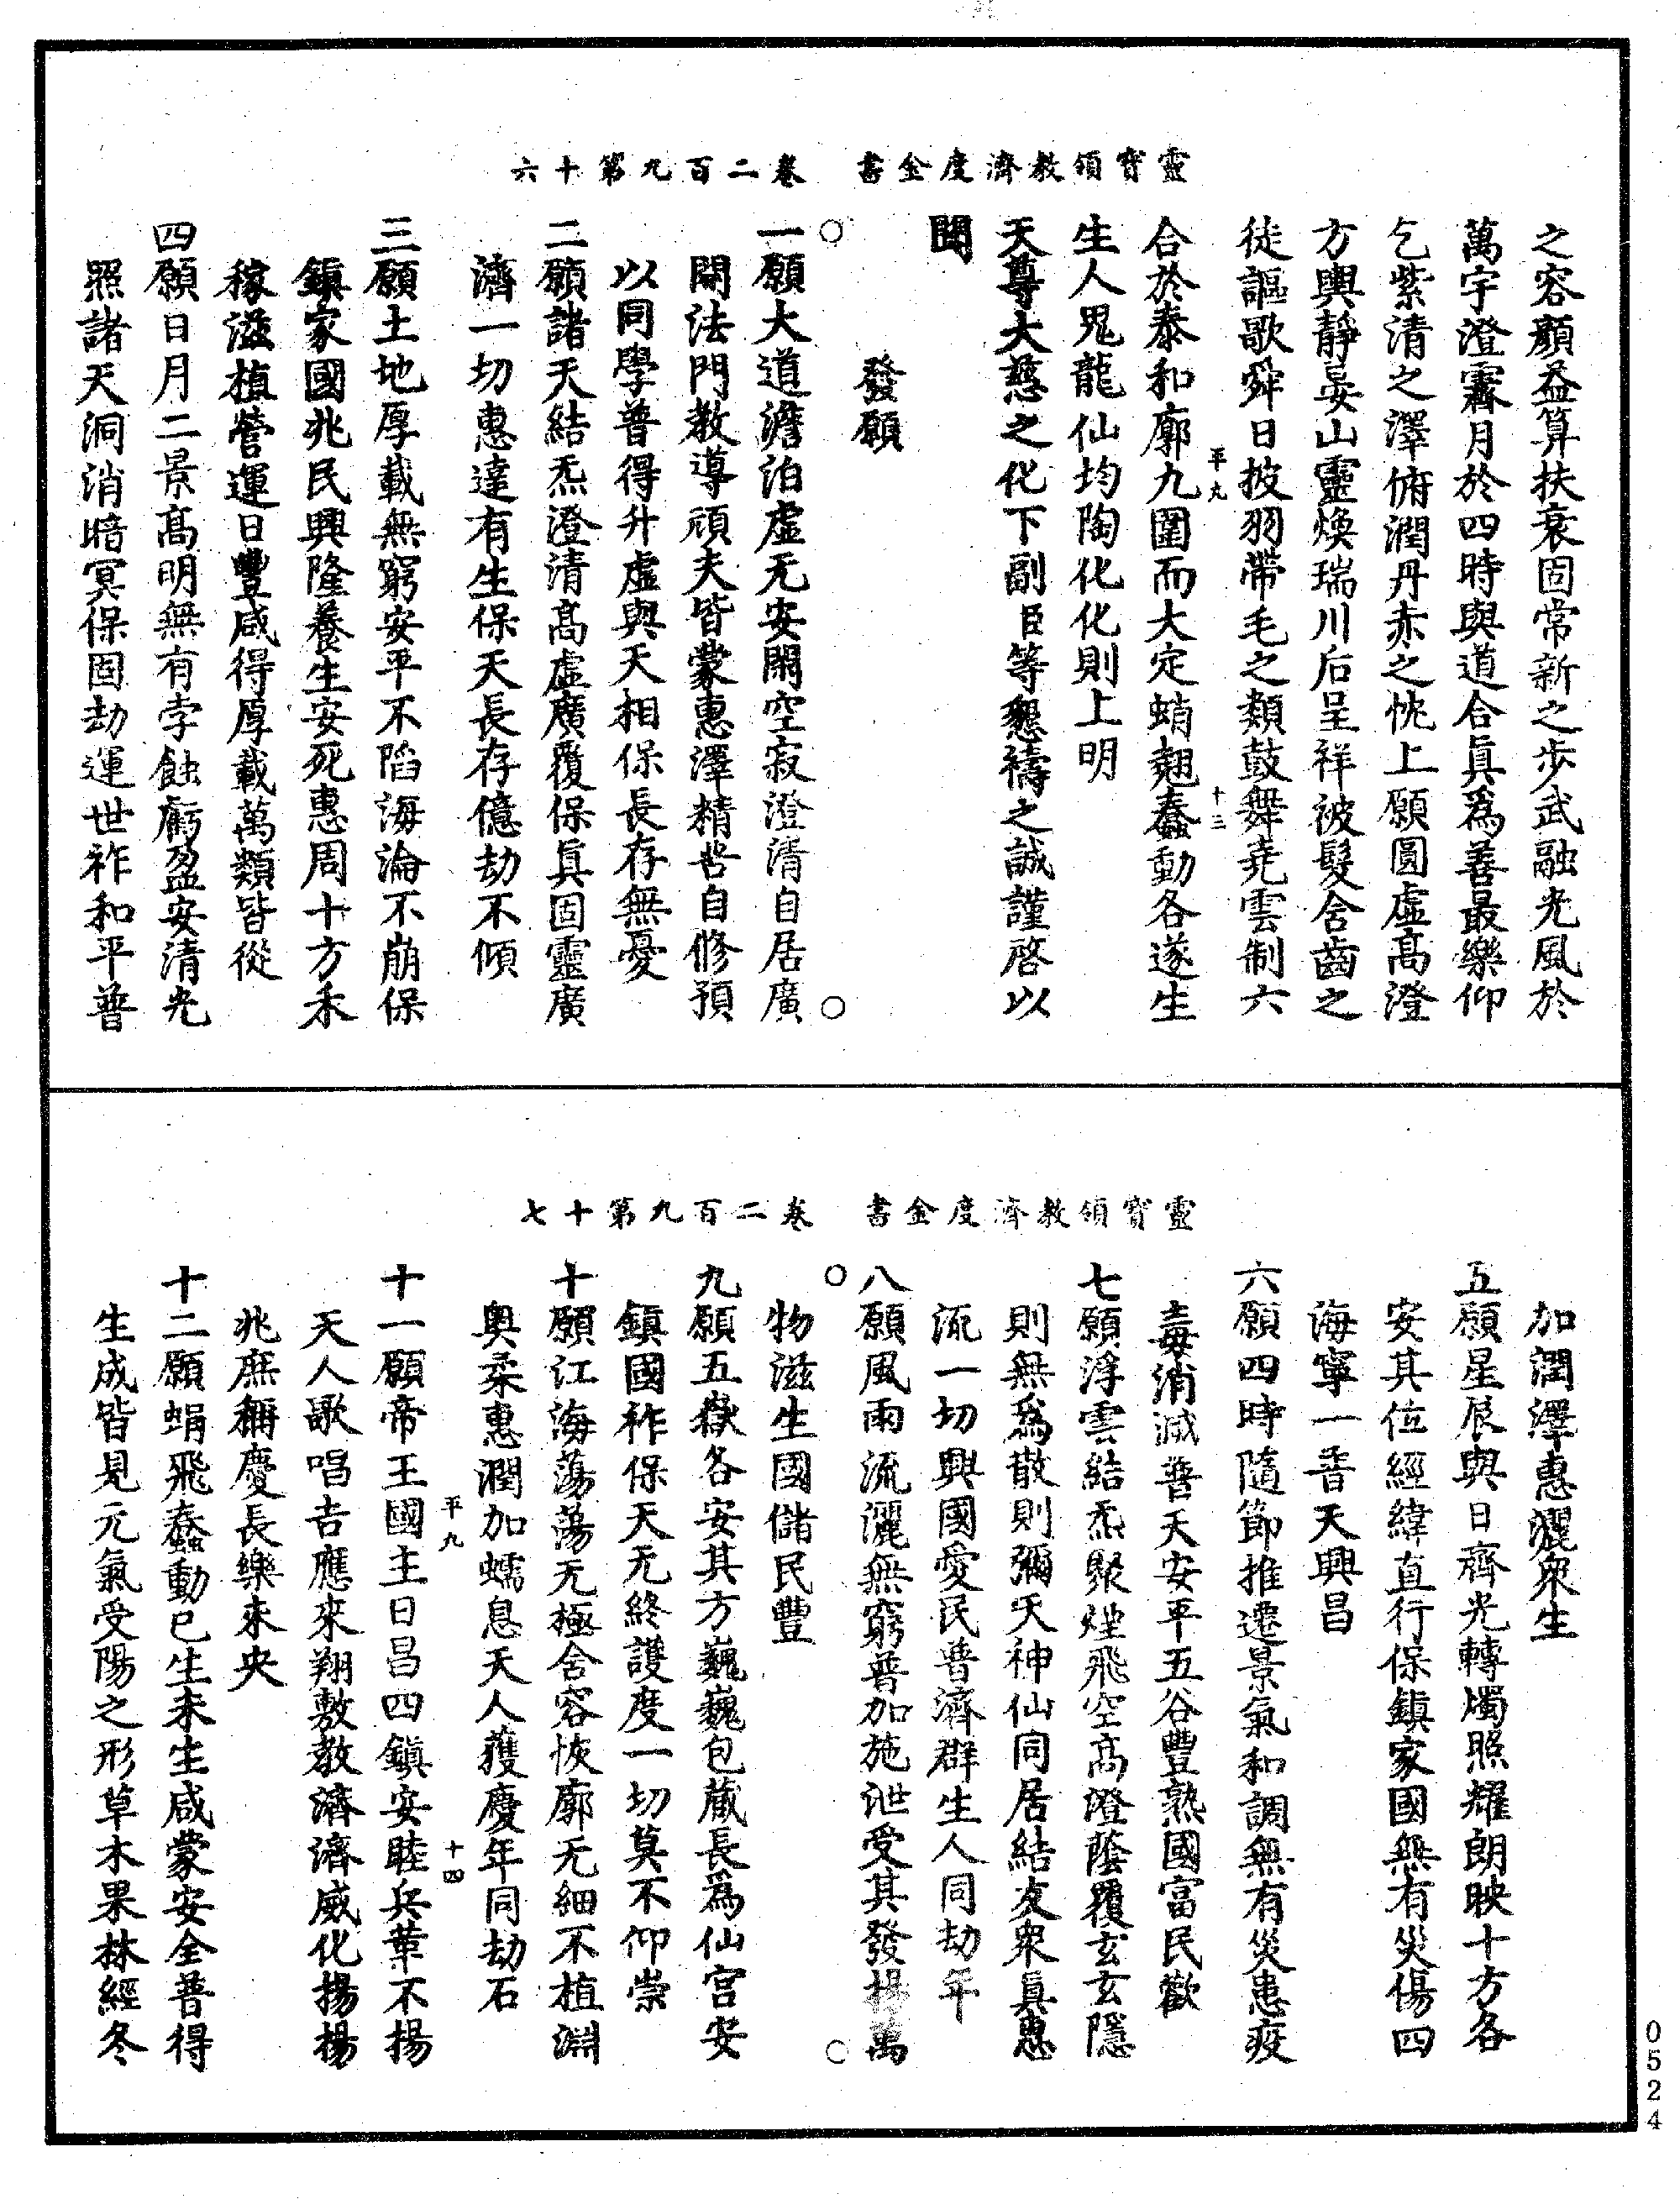 靈寶領教濟度金書　卷二百九第十六
之容顏益算扶衰固常新之步武融光風於
萬宇澄霽月於四時與道合眞爲善最樂仰
乞紫清之澤俯潤丹赤之忱上願圓虛高澄
方輿靜晏山靈煥瑞川后呈祥被髮含齒之
徒謳歌舜日披羽帶毛之類鼓舞堯雲制六
平九　十三
合於泰和廓九圍而大定蛸翹蠢動各遂生
生人鬼龍仙均陶化化則上明
天尊大慈之化下副臣等懇禱之誠謹啓以
聞
發願
一願大道澹泊虛无安閑空寂澄清自居廣
開法門教導頑夫皆蒙惠澤精苦自修預
以同學普得升虛與天相保長存無憂
二願諸天結炁澄清高虛廣覆保眞固靈廣
濟一切惠達有生保天長存億劫不傾
三願土地厚載無窮安平不陷海淪不崩保
鎮家國兆民興隆養生安死惠周十方禾
稼滋植營運日豐咸得厚載萬類皆從
四願日月二景高明無有孛蝕虧盈安清光
照諸天洞消暗冥保固劫運世祚和平普
靈寶領教濟度金書　卷二百九第十七
加潤澤惠灑衆生
五願星辰與日齊光轉燭照耀朗映十方各
安其位經緯直行保鎮家國無有災傷四
海寧一普天興昌
六願四時隨節推遷景氣和調無有災患疫
毒消滅普天安平五谷豐熟國富民歡
七願浮雲結炁聚煙飛空高澄蔭覆玄玄隱
則無爲散則彌天神仙同居結友衆眞惠
流一切興國愛民普濟群生人同劫年
八願風雨流灑無窮普加施泄受其發揚萬
物滋生國儲民豐
九願五嶽各安其方巍巍包藏長爲仙宮安
鎮國祚保天无終護度一切莫不仰崇
十願江海蕩蕩无極含容恢廓无細不植淵
奧柔惠潤加蠕息天人獲慶年同劫石
平九　十四
十一願帝王國主日昌四鎮安睦兵革不揚
天人歌唱吉應來翔敷教濟濟威化揚揚
兆庶稱慶長樂未央
十二願蜎飛蠢動已生未生咸蒙安全普得
生成皆見元氣受陽之形草木果林經冬
0524